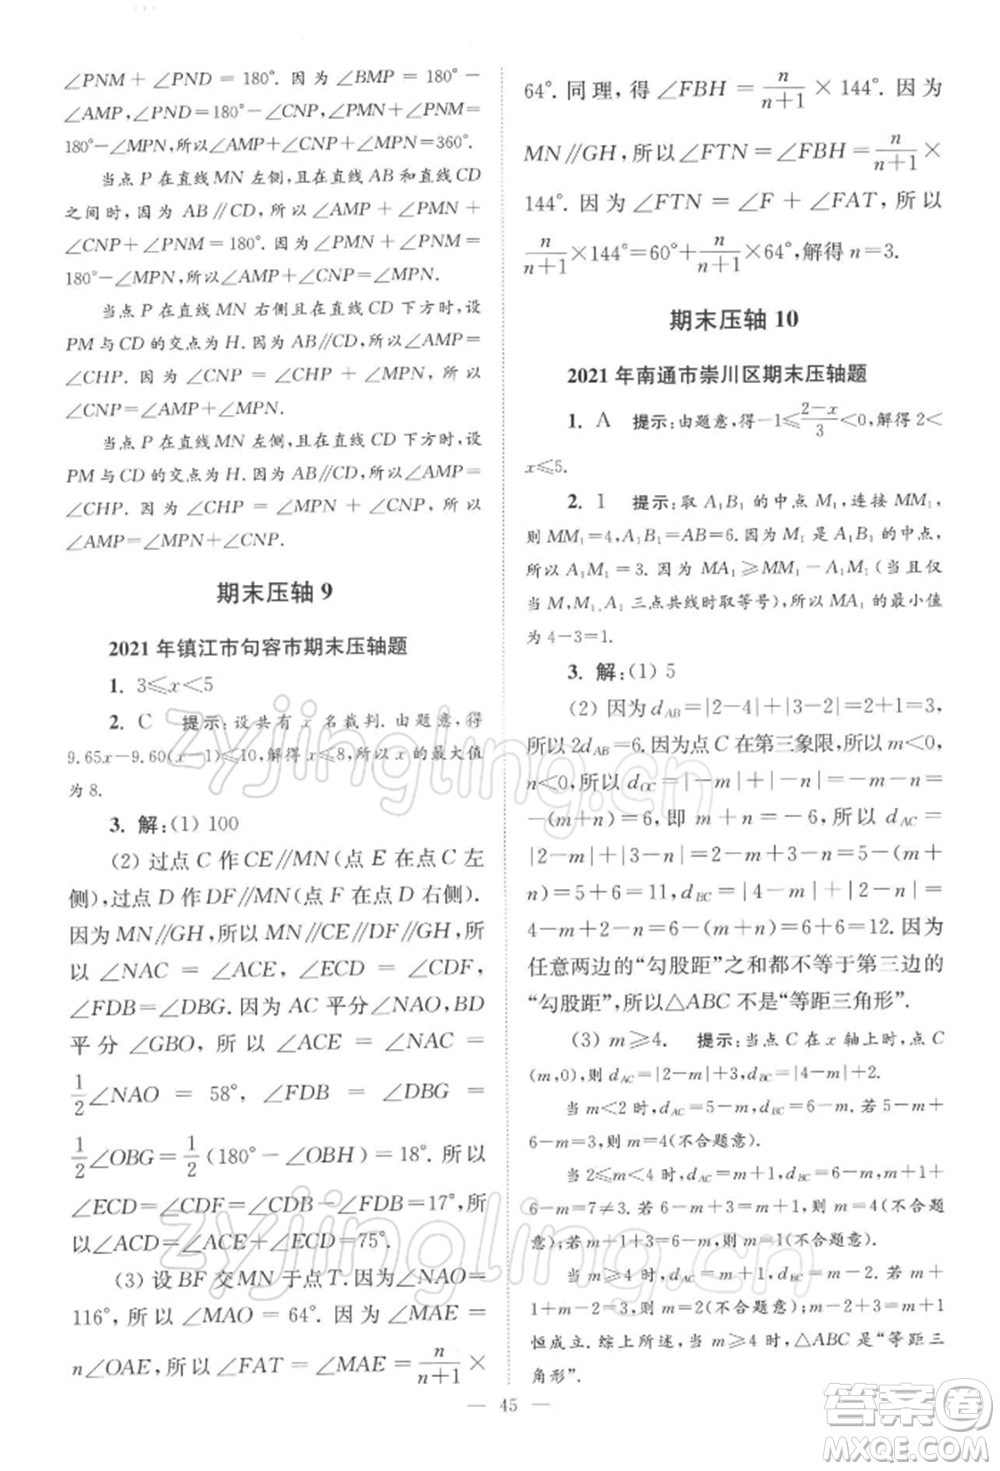 ∠PNM＋∠PND＝180°. 因为∠BMP＝180°－
∠AMP,∠PND＝180°－∠CNP,∠PMN＋∠PNM＝
180°－∠MPN,所以∠AMP＋∠CNP＋∠MPN＝360°.
当点 P 在直线 MN 左侧,且在直线 AB 和直线 CD
之间时,因为 AB∥CD,所以∠AMP＋∠PMN＋
∠CNP＋∠PNM＝180°. 因为∠PMN＋∠PNM＝
180°－∠MPN,所以∠AMP＋∠CNP＝∠MPN.
当点 P 在直线 MN 右侧且在直线 CD 下方时,设
PM 与 CD 的交点为 H. 因为 AB∥CD,所以∠AMP＝
∠CHP. 因为∠CHP＝∠CNP＋∠MPN,所以
∠AMP＝∠CNP＋∠MPN.
当点 P 在直线 MN 左侧且在直线 CD 下方时,设
PM 与 CD 的交点为 H. 因为 AB∥CD,所以∠AMP＝
∠CHP. 因为∠CHP＝∠MPN＋∠CNP,所以
∠AMP＝∠MPN＋∠CNP.
期末压轴 9
2021 年镇江市句容市期末压轴题
1. 3≤x＜5
2. C 提示:设共有 x 名裁判. 由题意,得
9.65x－9.60(x－1)≤10,解得 x≤8,所以 x 的最大值
为 8.
3. 解:(1) 100
(2) 过点 C 作 CE∥MN(点 E 在点 C 左
侧),过点 D 作 DF∥MN(点 F 在点 D 右侧).
因为 MN∥GH,所以 MN∥CE∥DF∥GH,所
以∠NAC＝∠ACE,∠ECD＝∠CDF,
∠FDB＝∠DBG. 因为 AC 平分∠NAO,BD
平分∠GBO,所以∠ACE＝∠NAC＝
1/2∠NAO＝58°,∠FDB＝∠DBG＝
1/2∠OBG＝1/2(180°－∠OBH)＝18°. 所以
∠ECD＝∠CDF＝∠CDB－∠FDB＝17°,所
以∠ACD＝∠ACE＋∠ECD＝75°.
(3) 设 BF 交 MN 于点 T. 因为∠OAK＝
116°,所以∠MAO＝64°. 因为∠MAE＝
n∠OAE,所以∠FAT＝∠MAE＝n/(n＋1)×
64°. 同理,得∠FBH＝n/(n＋1)×144°. 因为
MN∥GH,所以∠FTN＝∠FBH＝n/(n＋1)×
144°. 因为∠FTN＝∠F＋∠FAT,所以
n/(n＋1)×144°＝60°＋n/(n＋1)×64°,解得 n＝3.
期末压轴 10
2021 年南通市崇川区期末压轴题
1. A 提示:由题意,得－1≤(2－x)/3＜0,解得 2＜
x≤5.
2. 1 提示:取 A₁B₁ 的中点 M₁,连接 MM₁,
则 MM₁＝4,A₁B₁＝AB＝6. 因为 M₁ 是 A₁B₁ 的中点,
所以 A₁M₁＝3. 因为 MA₁≥MM₁－A₁M₁(当且仅
当 M、A₁、M₁ 三点共线时取等号),所以 MA₁ 的最小值
为 4－3＝1.
3. 解:(1) 5
(2) 因为 d_AB＝|2－4|＋|3－2|＝2＋1＝3,
所以 2d_AB＝6. 因为点 C 在第三象限,所以 m＜0,
n＜0,所以 d_OC＝|m|＋|n|＝－m－n＝
－(m＋n)＝6,即 m＋n＝－6,所以 d_AC＝
|2－m|＋|3－n|＝2－m＋3－n＝5－(m＋n)
＝5＋6＝11,d_BC＝|4－m|＋|2－n|＝
4－m＋2－n＝6－(m＋n)＝6＋6＝12. 因为
任意两边的“勾股距”之和都不等于第三边的
“勾股距”,所以△ABC 不是“等距三角形”.
(3) m≥4. 提示:当点 C 在 x 轴上时,点 C
(m,0),则 d_AC＝|2－m|＋3,d_BC＝|4－m|＋2.
当 m＜2 时,d_AC＝5－m,d_BC＝6－m. 若 5－m＋
6－m＝3,则 m＝4(不合题意).
当 2≤m＜4 时,d_AC＝m＋1,d_BC＝6－m. 若 m＋1
＋6－m＝7≠3. 若 6－m＋3＝m＋1,则 m＝4(不合题
意);若 m＋1＋3＝6－m,则 m＝1(不合题意).
当 m≥4 时,d_AC＝m＋1,d_BC＝m－2. 若 m＋
1＋m－2＝3,则 m＝2(不合题意). m－2＋3＝m＋1
恒成立. 综上所述,当 m≥4 时,△ABC 是“等距三
角形”.
— 45 —
zyjingling.cn
zyjingling.cn
答案圈
MXQE.COM